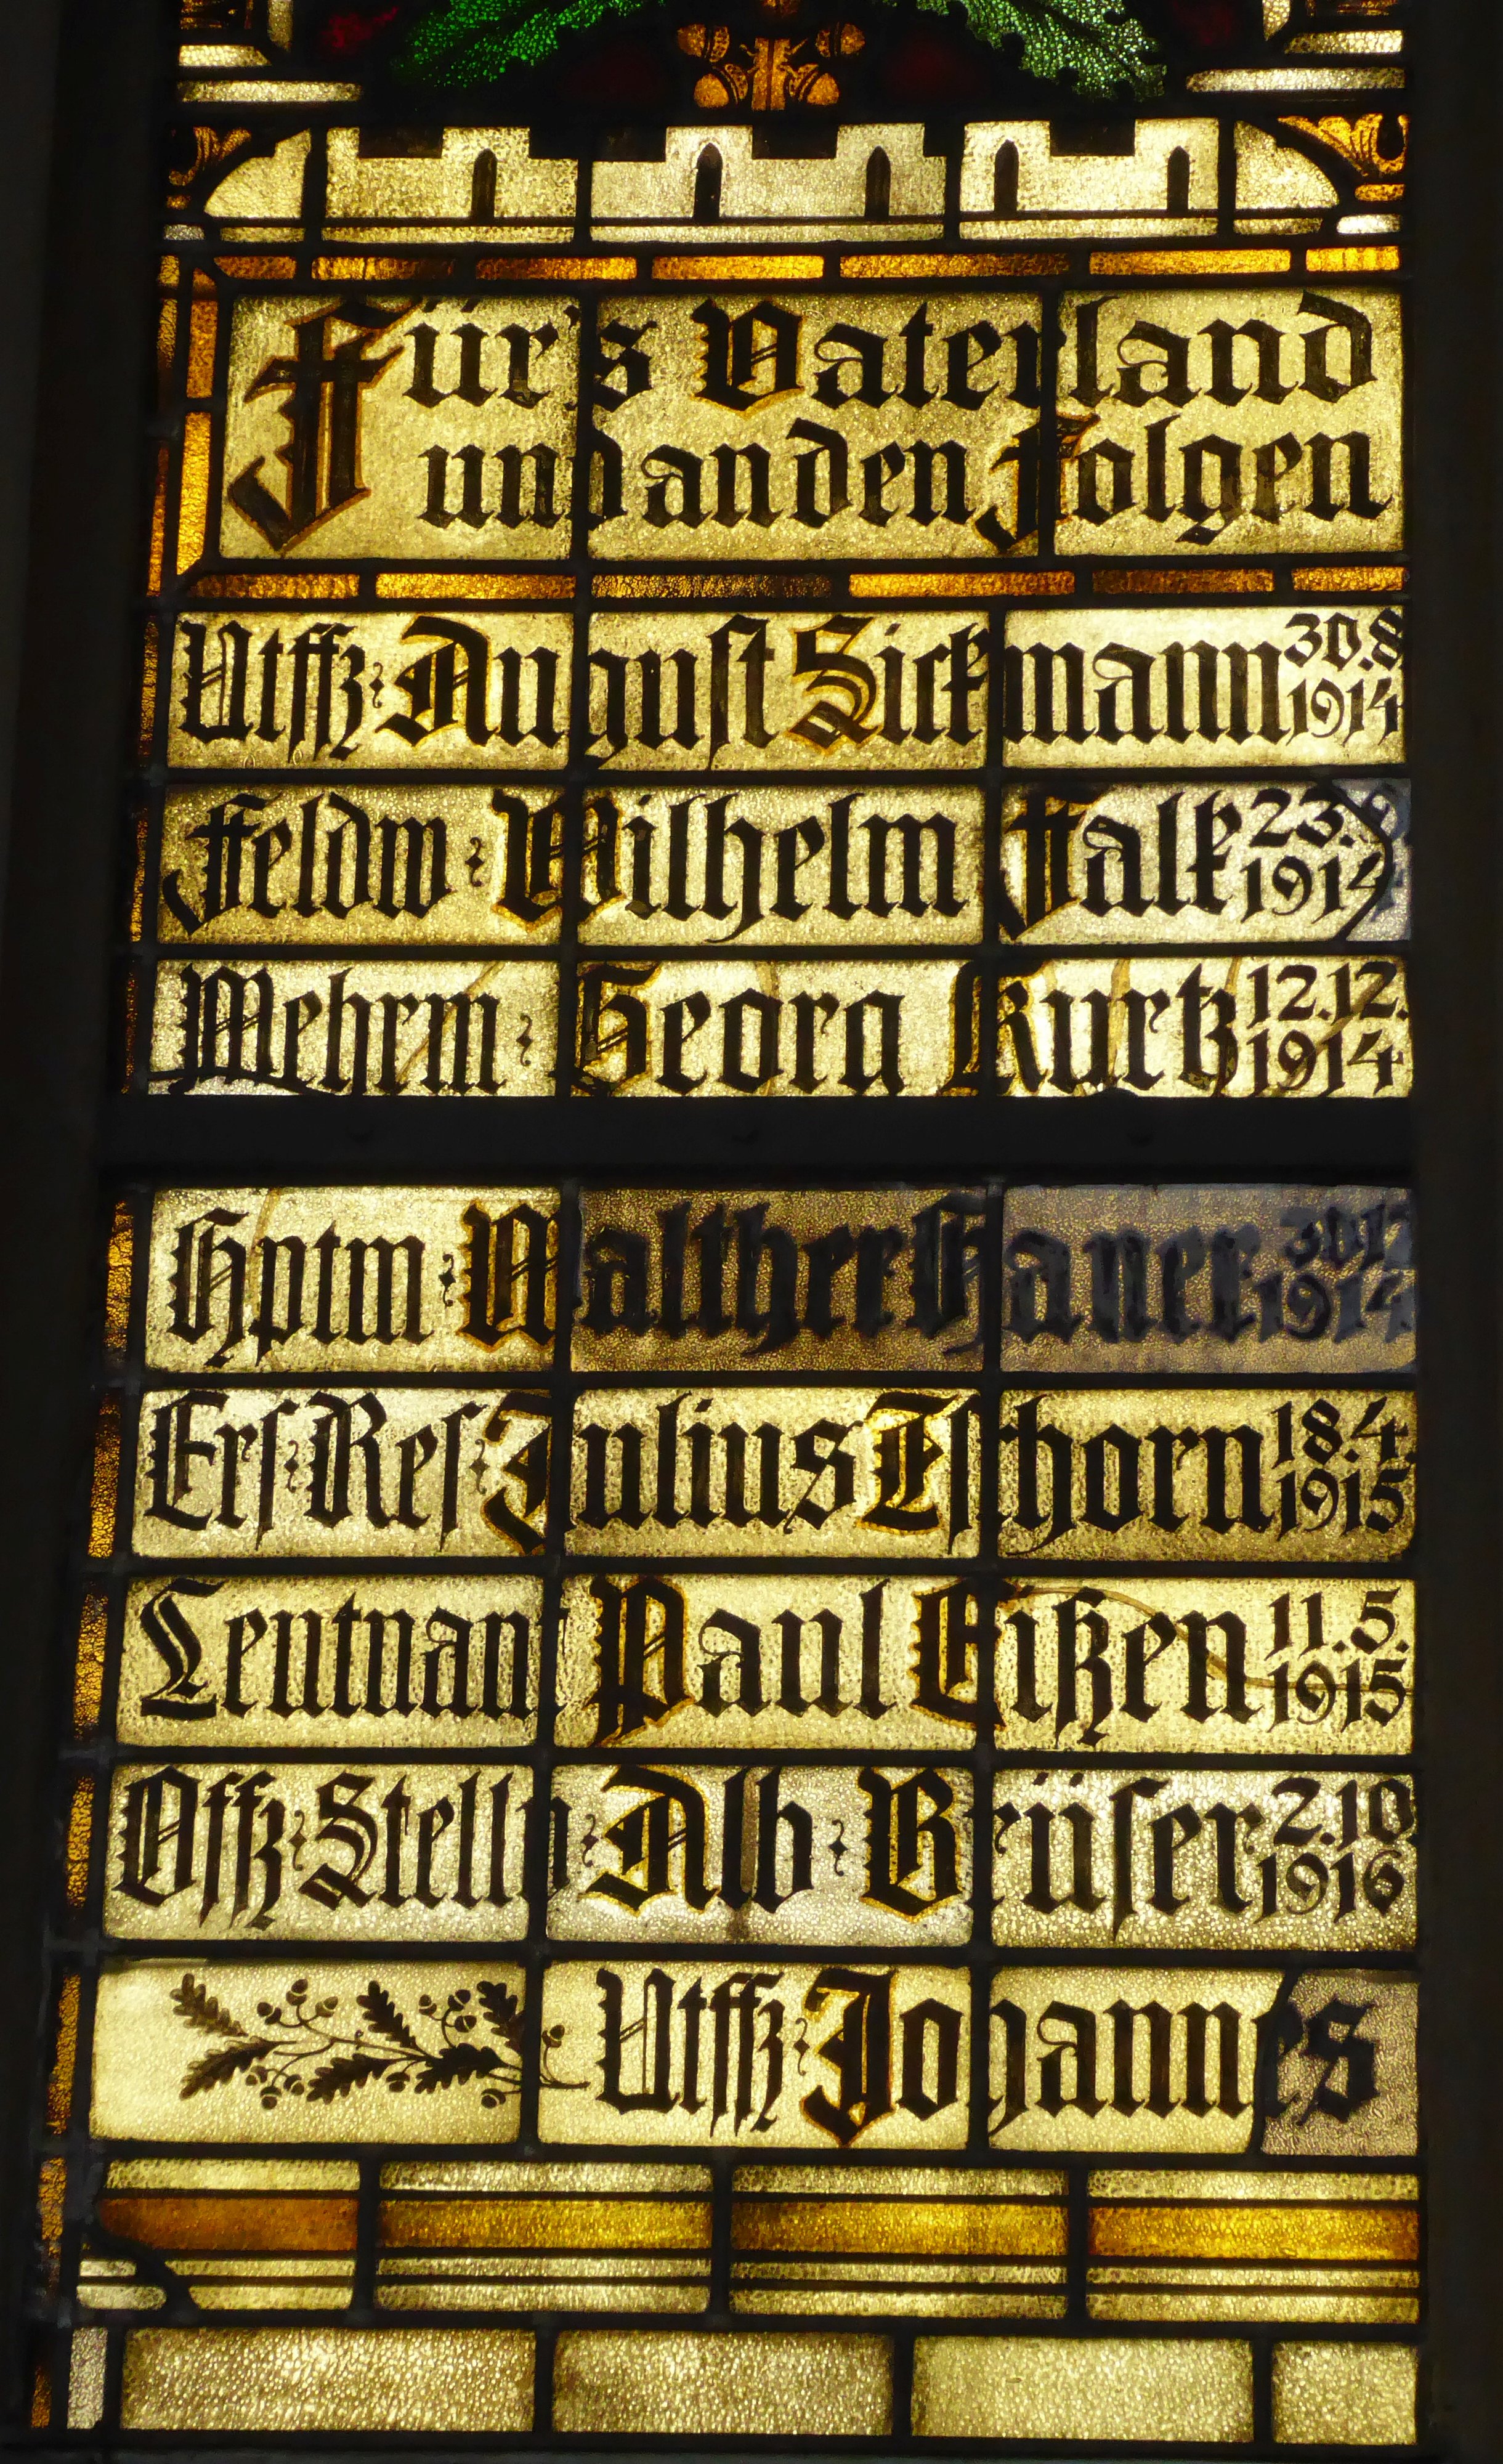 Für's Vaterland
und an den Folgen
Utffz· August Sickmann 30.8 1914
Feldw· Wilhelm Falk 23. 1914
Wehrm· Georg Kurtz 12.12. 1914
Hptm· Walther 1914
Erſ·Reſ· Julius Eſthorn 18.4. 1915
Leutnant Paul Eißen 11.5. 1915
Offz·Stellv· Alb· Brüſer 2.10 1916
Utffz· Johannes